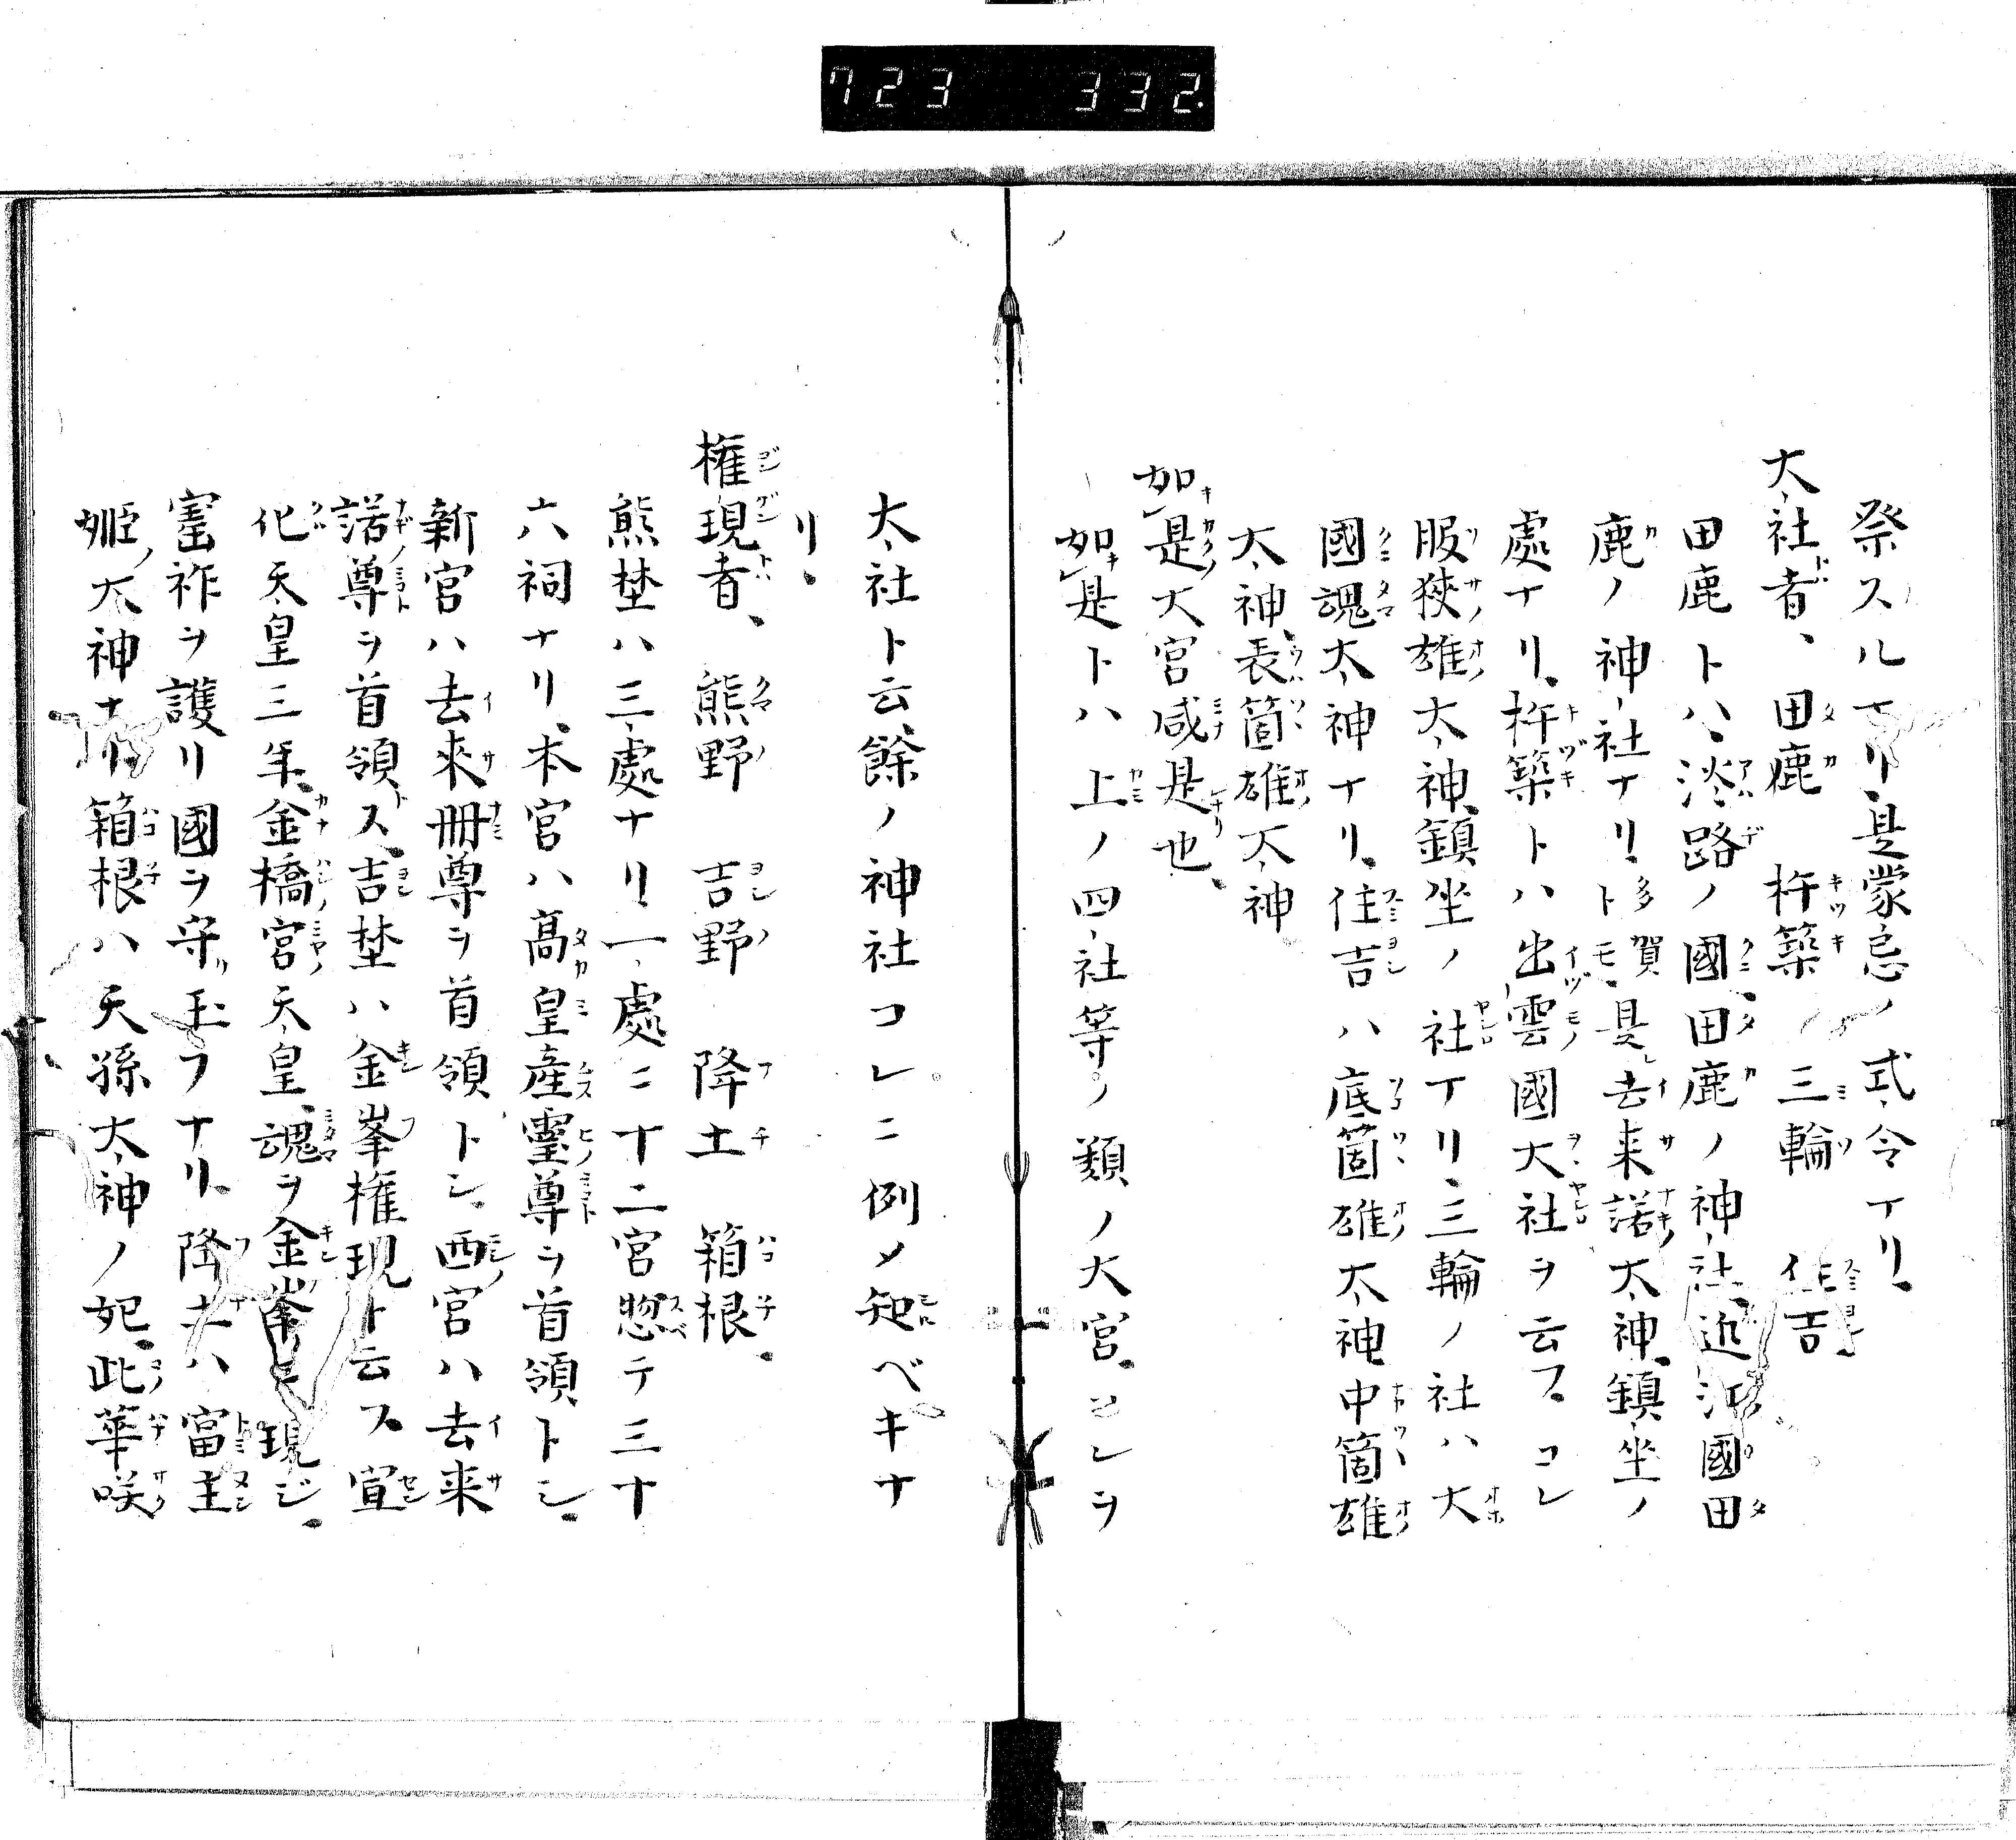 723 332
祭スルナリ、是蒙忌ノ式令ナリ、
大社者、田鹿 杵築 三輪 住吉
田鹿トハ、淡路ノ國、田鹿ノ神社、近江國田
鹿ノ神社ナリトモ、是去来諾太神、鎮坐ノ
處ナリ、杵築トハ出雲國大社ヲ云フコレ
服狹雄太神、鎮坐ノ社ナリ、三輪ノ社ハ大
國魂太神ナリ、住吉ハ底箇雄太神中箇雄
太神、表箇雄太神
如是大宮咸是也、
如是トハ上ノ四社等ノ類ノ大宮、コレヲ
太社ト云、餘ノ神社コレニ例メ知ベキナ
リ、
権現者、熊野 吉野 降土 箱根、
熊埜ハ三處ナリ一處ニ十二宮惣テ三十
六祠ナリ、本宮ハ高皇産霊尊ヲ首領トシ、
新宮ハ去來冊尊ヲ首領トシ、西宮ハ去来
諾尊ヲ首領トス、吉埜ハ金峯権現ト云ス宣
化天皇三年、金橋宮天皇、魂ヲ金峯ニ現ジ、
寳祚ヲ護リ國ヲ守リ玉フナリ、降土ハ富主
姫太神ナリ、箱根ハ天孫太神ノ妃、此華咲